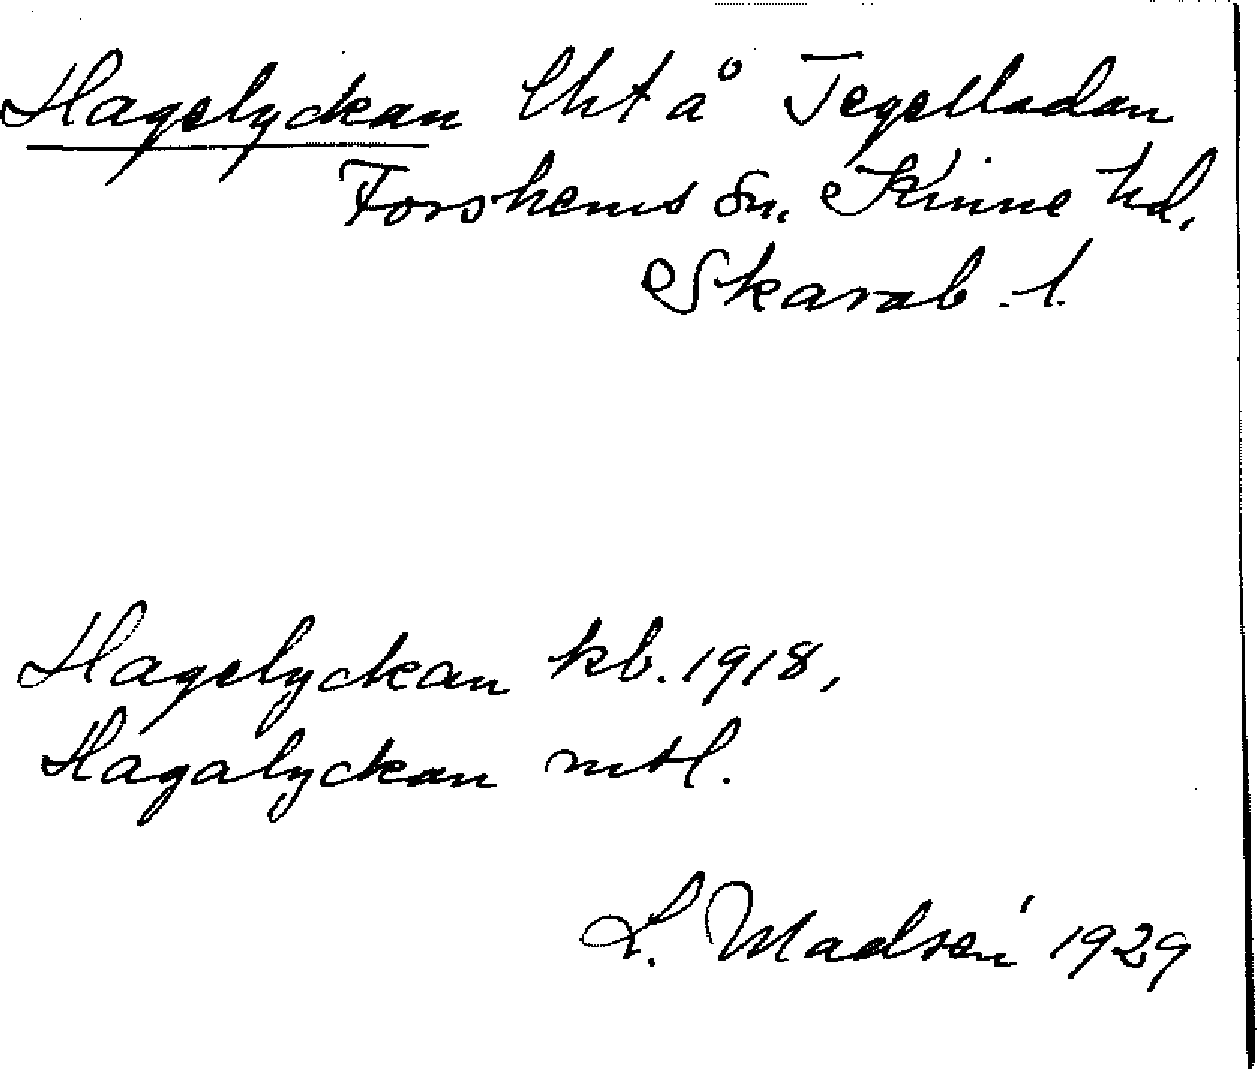 Hagelyckan lht å Tegelladan
Forshems sn. Kinne hd.
Skarab. l.
Hagelyckan kb. 1918,
Hagalyckan mtl.
L. Madsén 1929